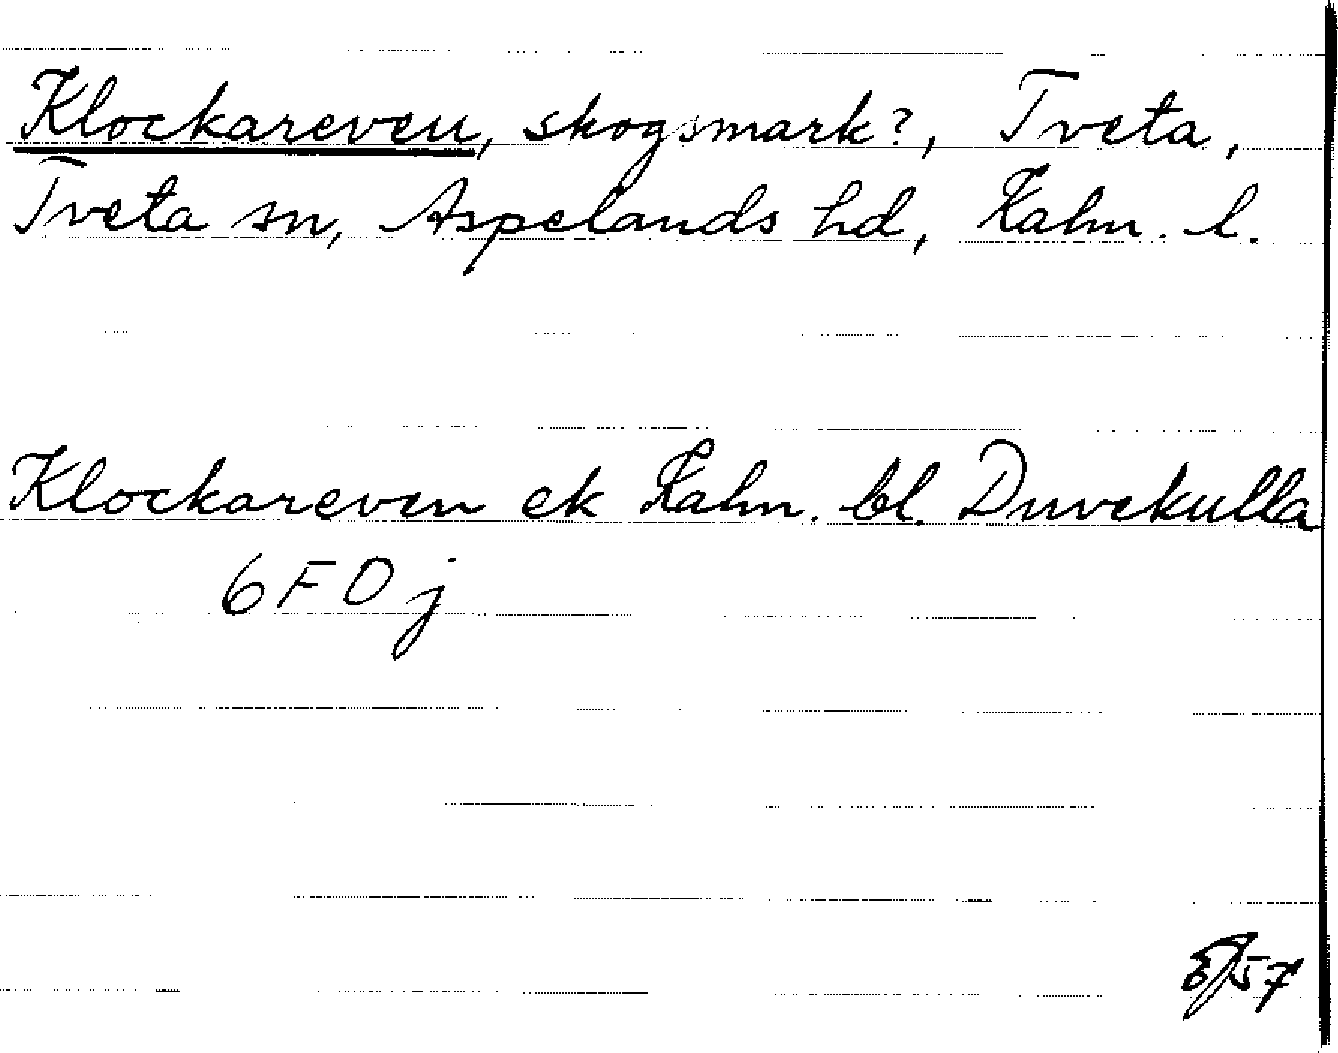 Klockareven, skogsmark?, Tveta,
Tveta sn, Aspelands hd, Kalm. l.
Klockareven ek Kalm. bl. Duvekulla
6F0j
57